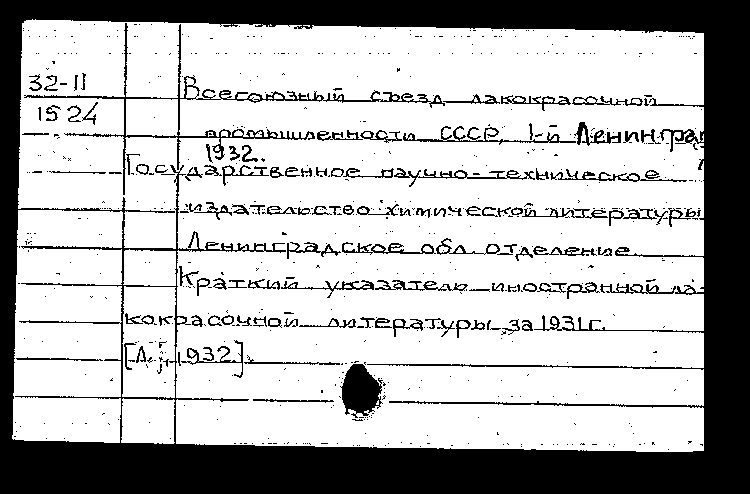 32-II
1524
Всесоюзный съезд лакокрасочной
промышленности СССР, 1-й Ленинград
1932.
Государственное научно-техническое
издательство химической литературы
Ленинградское обл. отделение
Краткий указатель иностранной ла-
кокрасочной литературы за 1931г.
[Л., 1932].